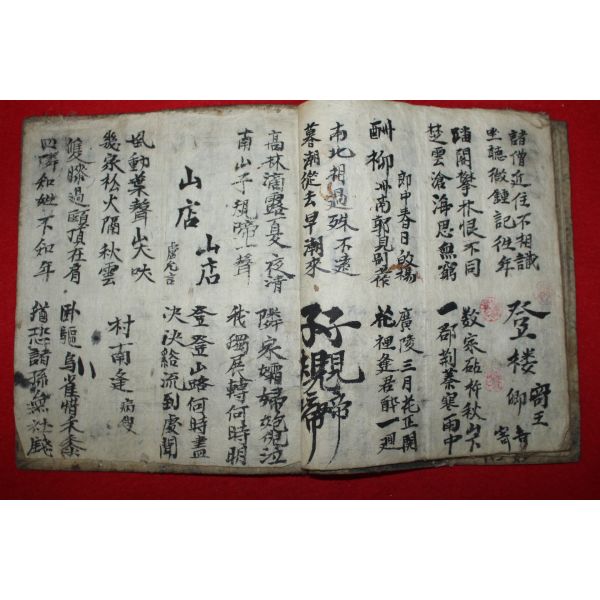 諸僧近住不相識
坐聽微鐘記徃年
登樓
寄王
卿
踏閣攀林恨不同
楚雲滄海思無窮
數家砧杵秋山下
一郡荊蓁寒雨中
酬柳
郎中春日故揚
州南郭見別作
廣陵三月花正開
花裡逢君醉一廻
南北相過殊不遠
暮潮從去早潮來
子規啼
子規啼
高林滴露夏夜清
南山子規啼一聲
隣家孀婦抱兒泣
我獨展轉何時明
山店
山店
盧允言
登登山路何時盡
決決給流到處聞
風動葉聲山犬吠
幾家松火隔秋雲
村南逢病叟
雙膝過頤頂在肩
四隣知姓不知年
卧驅烏雀惜禾黍
猶恐諸孫無社錢